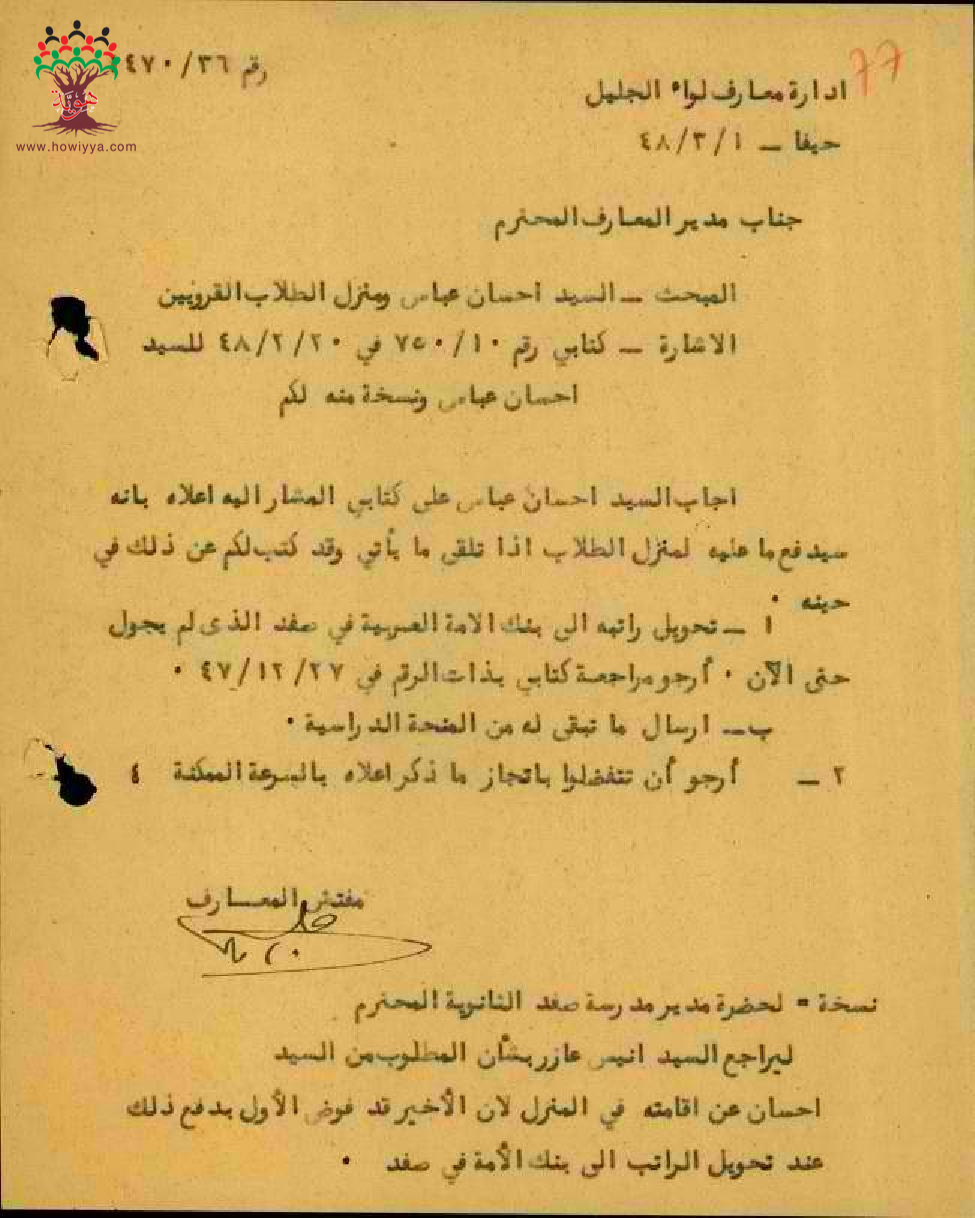 رقم ٤٧٠/٣٦
77
ادارة معارف لواء الجليل
حيفا ــ ٤٨/٣/١
هوية
www.howiyya.com
جناب مدير المعارف المحترم
المبحث ــ السيد احسان عباس ومنزل الطلاب القرويين
الاشارة ــ كتابي رقم ٧٥٠/١٠ في ٤٨/٢/٢٠ للسيد
احسان عباس ونسخة منه لكم
اجاب السيد احسان عباس على كتابي المشار اليه اعلاه بانه
سيدفع ما عليه لمنزل الطلاب اذا تلقى ما يأتي وقد كتب لكم عن ذلك في
حينه ٠
ا ــ تحويل راتبه الى بنك الامة العربية في صفد الذى لم يحول
حتى الآن ٠ أرجو مراجعة كتابي بذات الرقم في ٤٧/١٢/٢٧ ٠
ب ــ ارسال ما تبقى له من المنحة الدراسية ٠
٢ ــ أرجو أن تتفضلوا بانجاز ما ذكر اعلاه بالسرعة الممكنة ٤
مفتش المعارف
نسخة = لحضرة مدير مدرسة صفد الثانوية المحترم
ليراجع السيد انيس عازر بشأن المطلوب من السيد
احسان عن اقامته في المنزل لان الأخير قد فوض الأول بدفع ذلك
عند تحويل الراتب الى بنك الأمة في صفد ٠